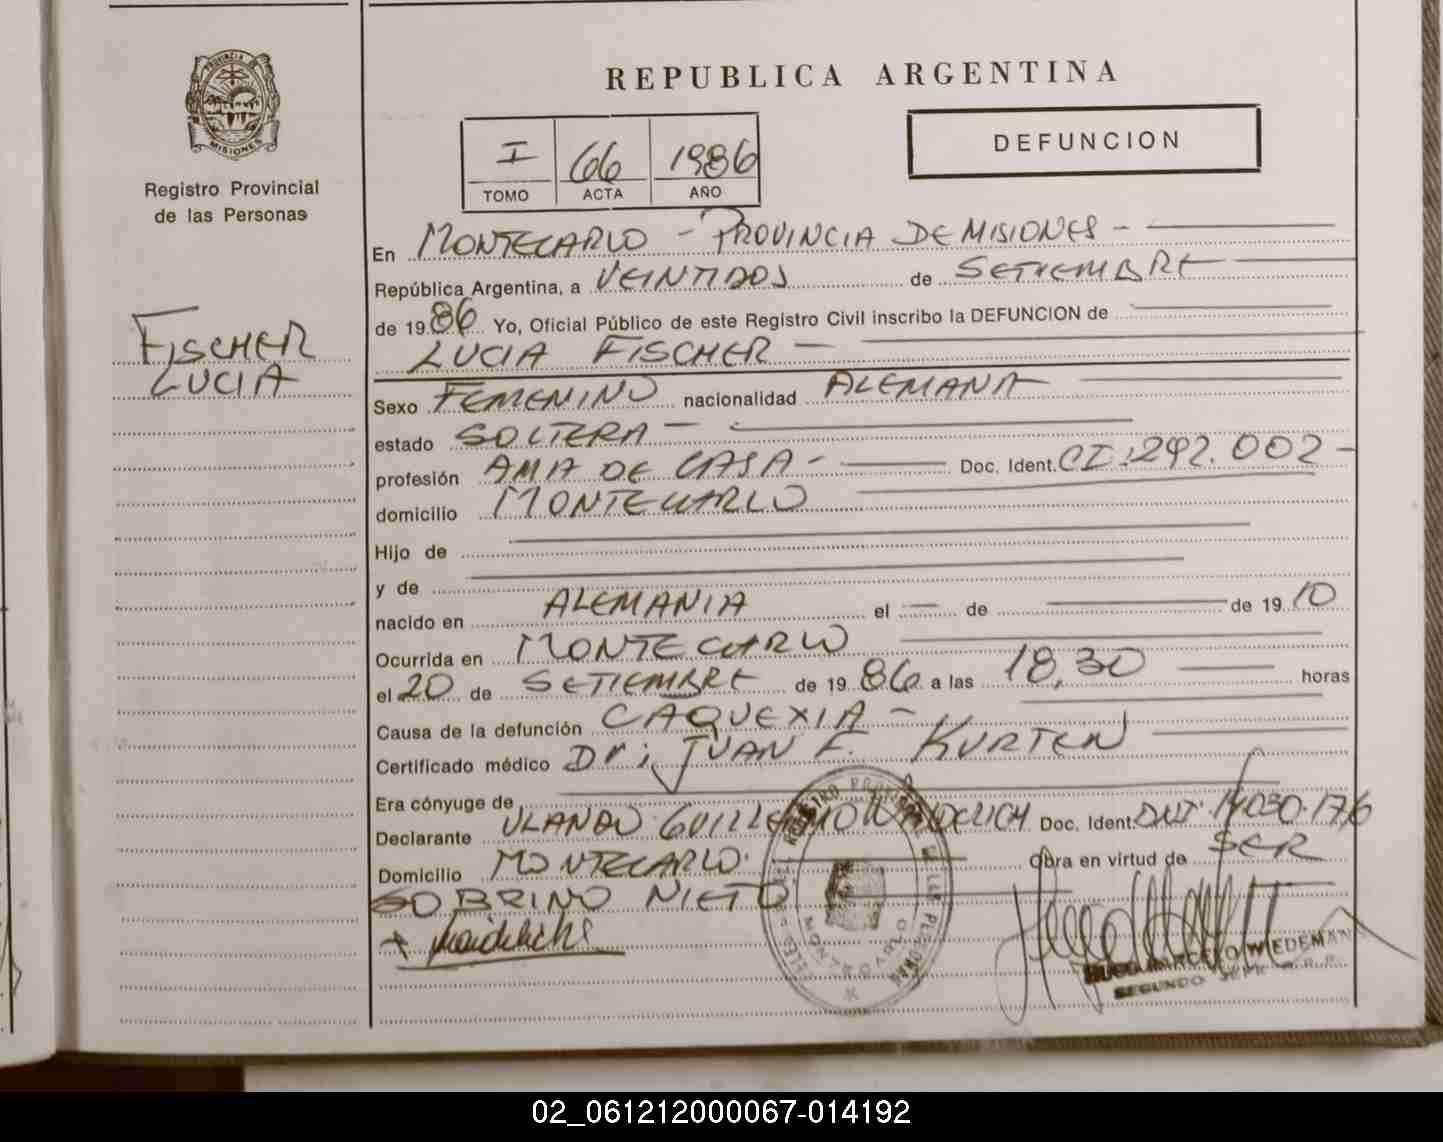 PROVINCIA DE
MISIONES
Registro Provincial
de las Personas
FISCHER
LUCIA
REPUBLICA ARGENTINA
I 66 1986
TOMO ACTA AÑO
DEFUNCION
En MONTECARLO - PROVINCIA DE MISIONES -
República Argentina, a VEINTIDOS de SETIEMBRE
de 1986 Yo, Oficial Público de este Registro Civil inscribo la DEFUNCION de
LUCIA FISCHER -
Sexo FEMENINO nacionalidad ALEMANA
estado SOLTERA -
profesión AMA DE CASA - Doc. Ident. CI: 292.002 -
domicilio MONTECARLO
Hijo de
y de
nacido en ALEMANIA el — de — de 1910
Ocurrida en MONTECARLO
el 20 de SETIEMBRE de 1986 a las 18,30 horas
Causa de la defunción CAQUEXIA -
Certificado médico Dr: JUAN F. KURTEN
Era cónyuge de
Declarante GUILLERMO Doc. Ident. DNI 14030.176
Domicilio MONTECARLO. Obra en virtud de SER
SOBRINO NIETO
MONTECARLO
WIEDEMAN
SEGUNDO
02_061212000067-014192